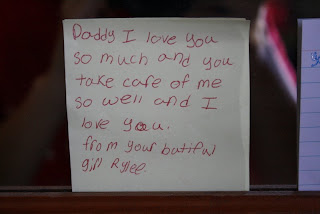 Daddy I love you
so much and you
take cafe of me
so well and I
love you.
from your butiful
girl Rylee.